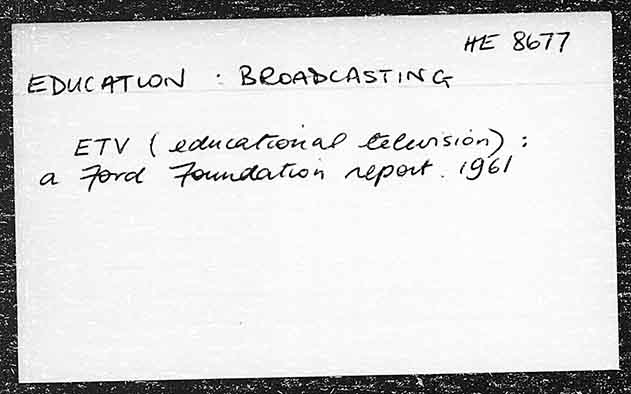 HE 8677
EDUCATION : BROADCASTING
ETV (educational television) :
a Ford Foundation report. 1961